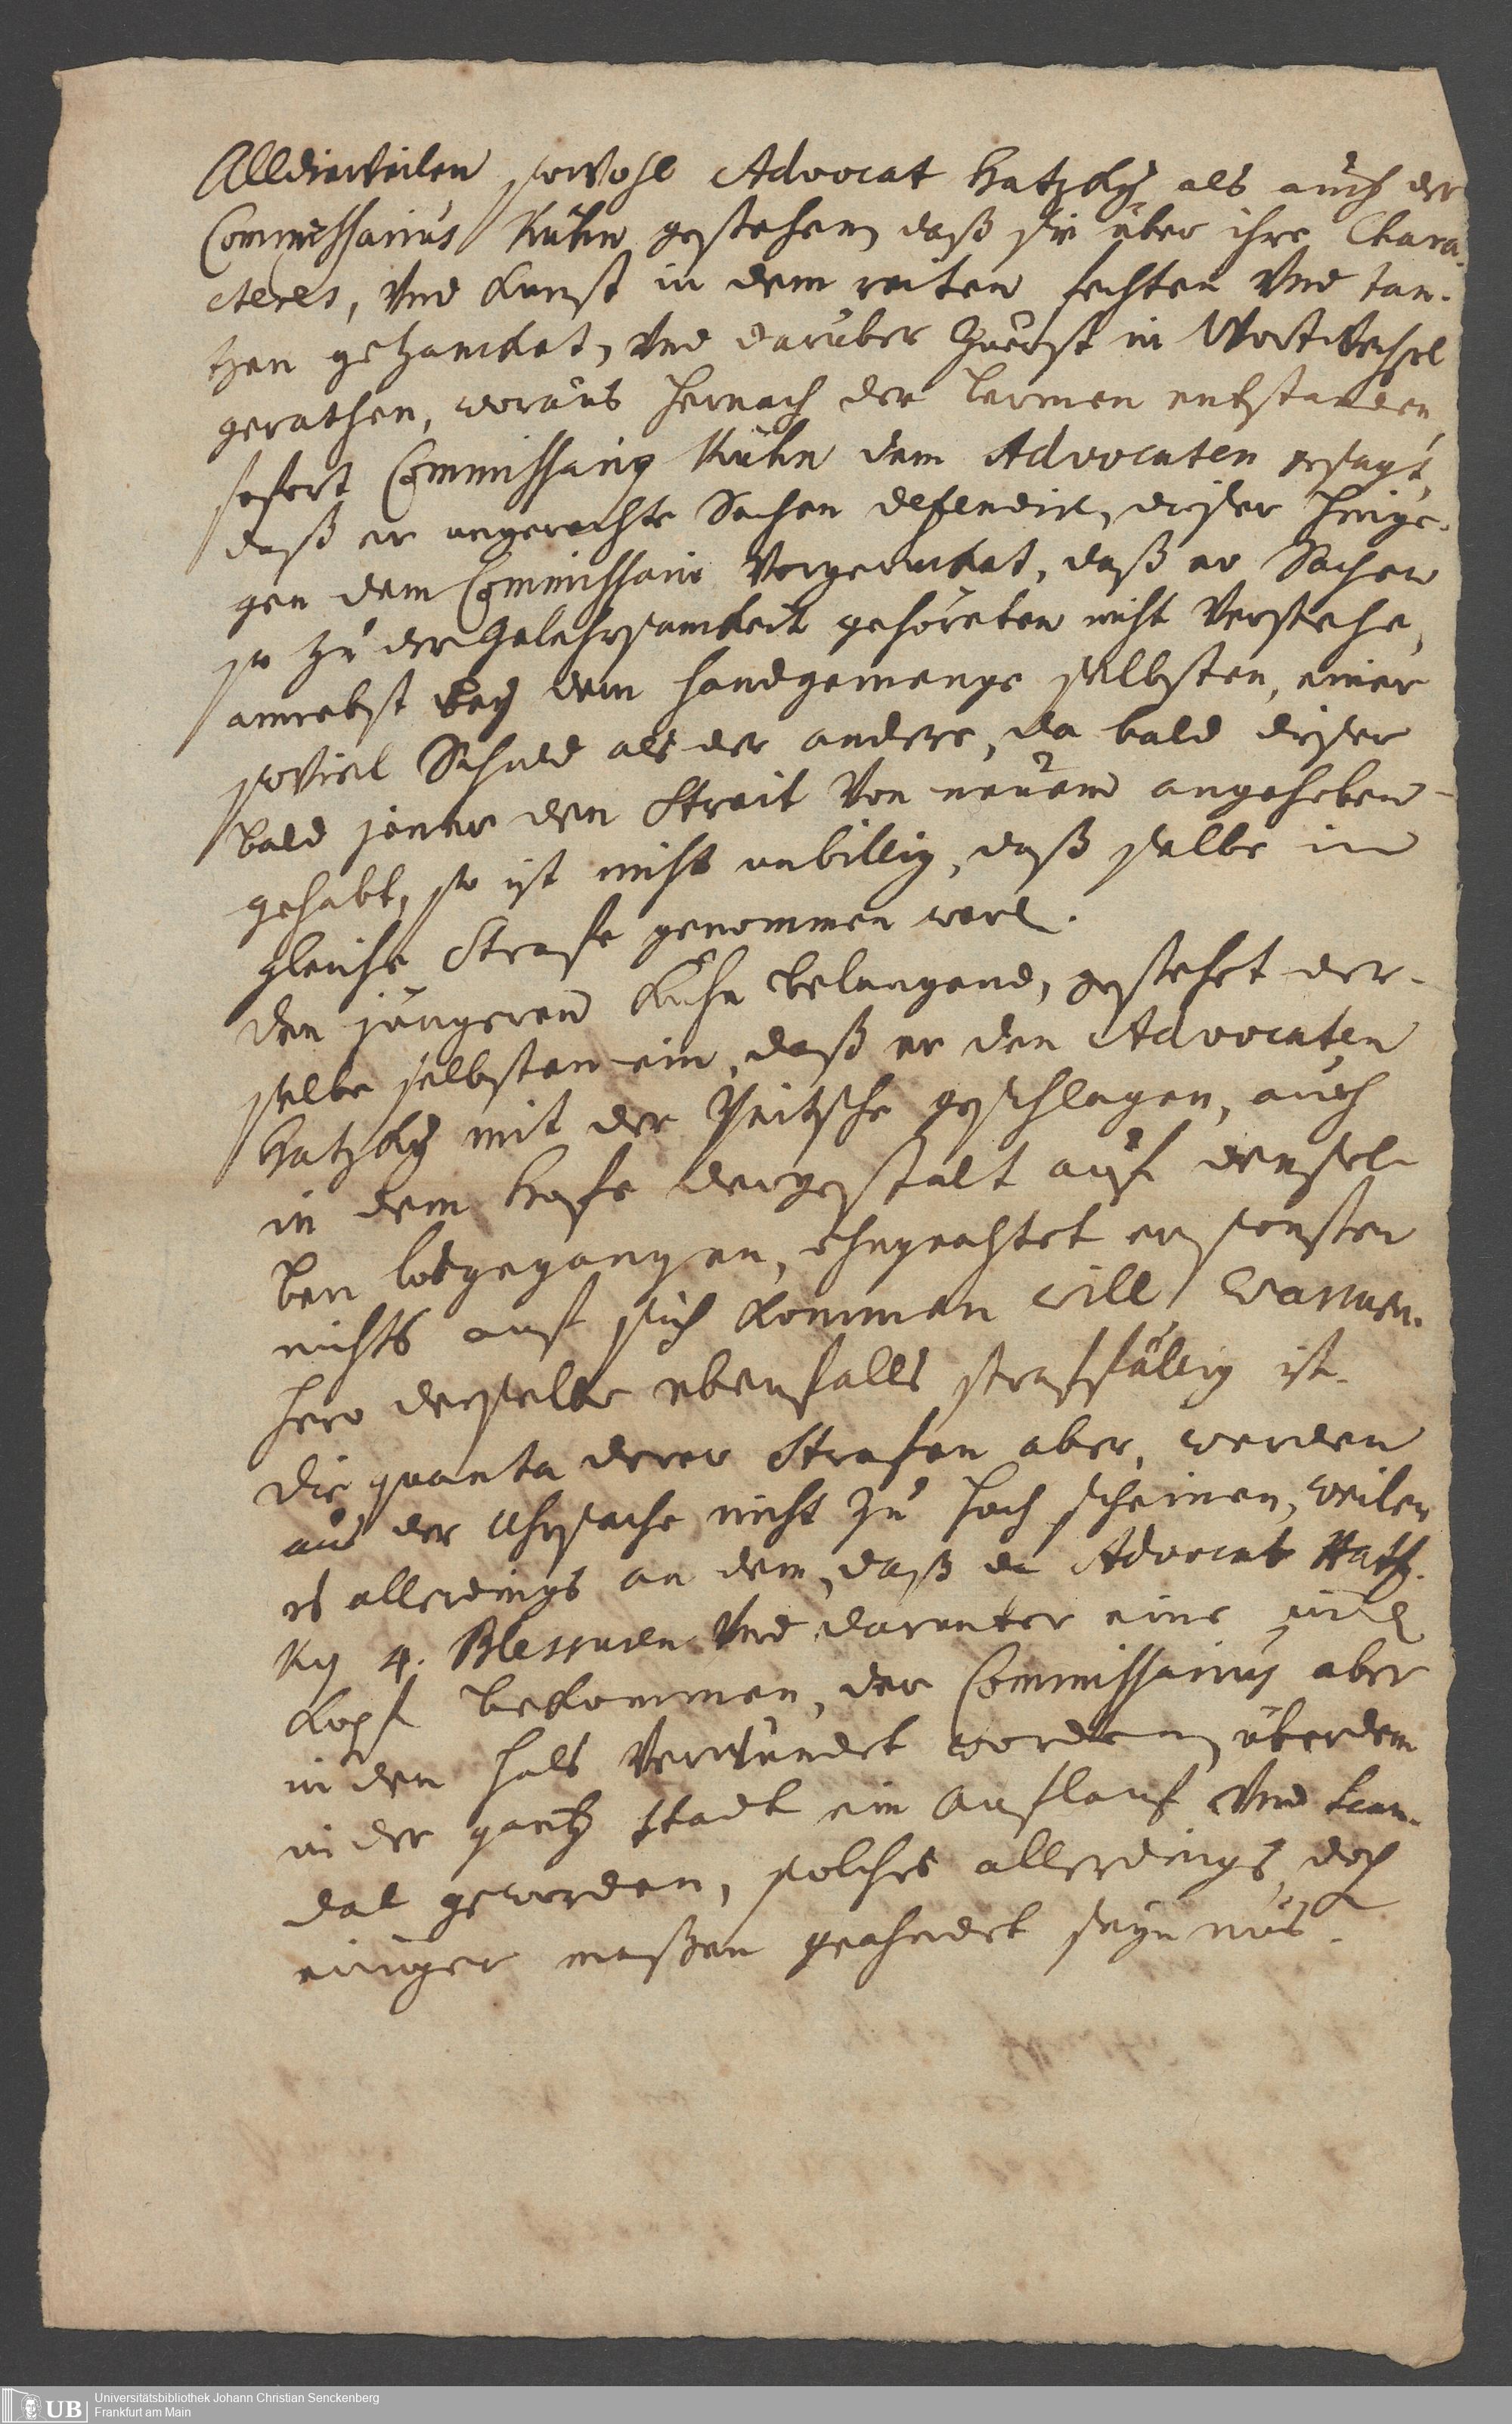 Alldieweilen sowohl Advocat Hatzky als auch der
Commissarius Kühn gestehen, daß sie über ihre Chara-
cteres, Und Kunst in dem reiten fechten Und tan-
tzen gezancket, Und darüber Zuerst in Wortwechsel
gerathen, woraus hernach der Lermen entstanden,
sofort Commissarius Kühn dem Advocaten gesagt,
daß er ungerechte Sachen defendire, dieser hinge-
gen dem Commissario Vorgerucket, daß er Sachen
so zu der Gelehrsamkeit gehöreten nicht Verstehe,
annebst bey dem handgemenge selbsten, einer
soviel Schuld als der andere, da bald dieser
bald jener den Streit Von neuem angehoben
gehabt, so ist nicht unbillig, daß selbe in
gleiche Strafe genommen werden.
Den jüngeren Kühn belangend, gestehet der-
selbe selbsten ein, daß er den Advocaten
Hatzky mit der Peitsche geschlagen, auch
in dem Hofe dergestalt auf densel-
ben losgegangen, ohngeachtet er sonsten
nichts auf sich kommen will, wannen-
hero derselbe ebenfalls straffällig ist.
Die quanta derer Strafen aber, werden
aus der Uhrsache nicht zu hoch scheinen, weilen
es allerdings an dem, daß der Advocat Hatz-
ky 4. Blessuren Und darunter eine in den
Kopf bekommen, der Commissarius aber
in den Hals Verwundet worden, überdem
in der gantzen Stadt ein Auflauf Und Scan-
dal geworden, solches allerdings doch
einiger maßen geahndet seyn mus.
Universitätsbibliothek Johann Christian Senckenberg
Frankfurt am Main
UB